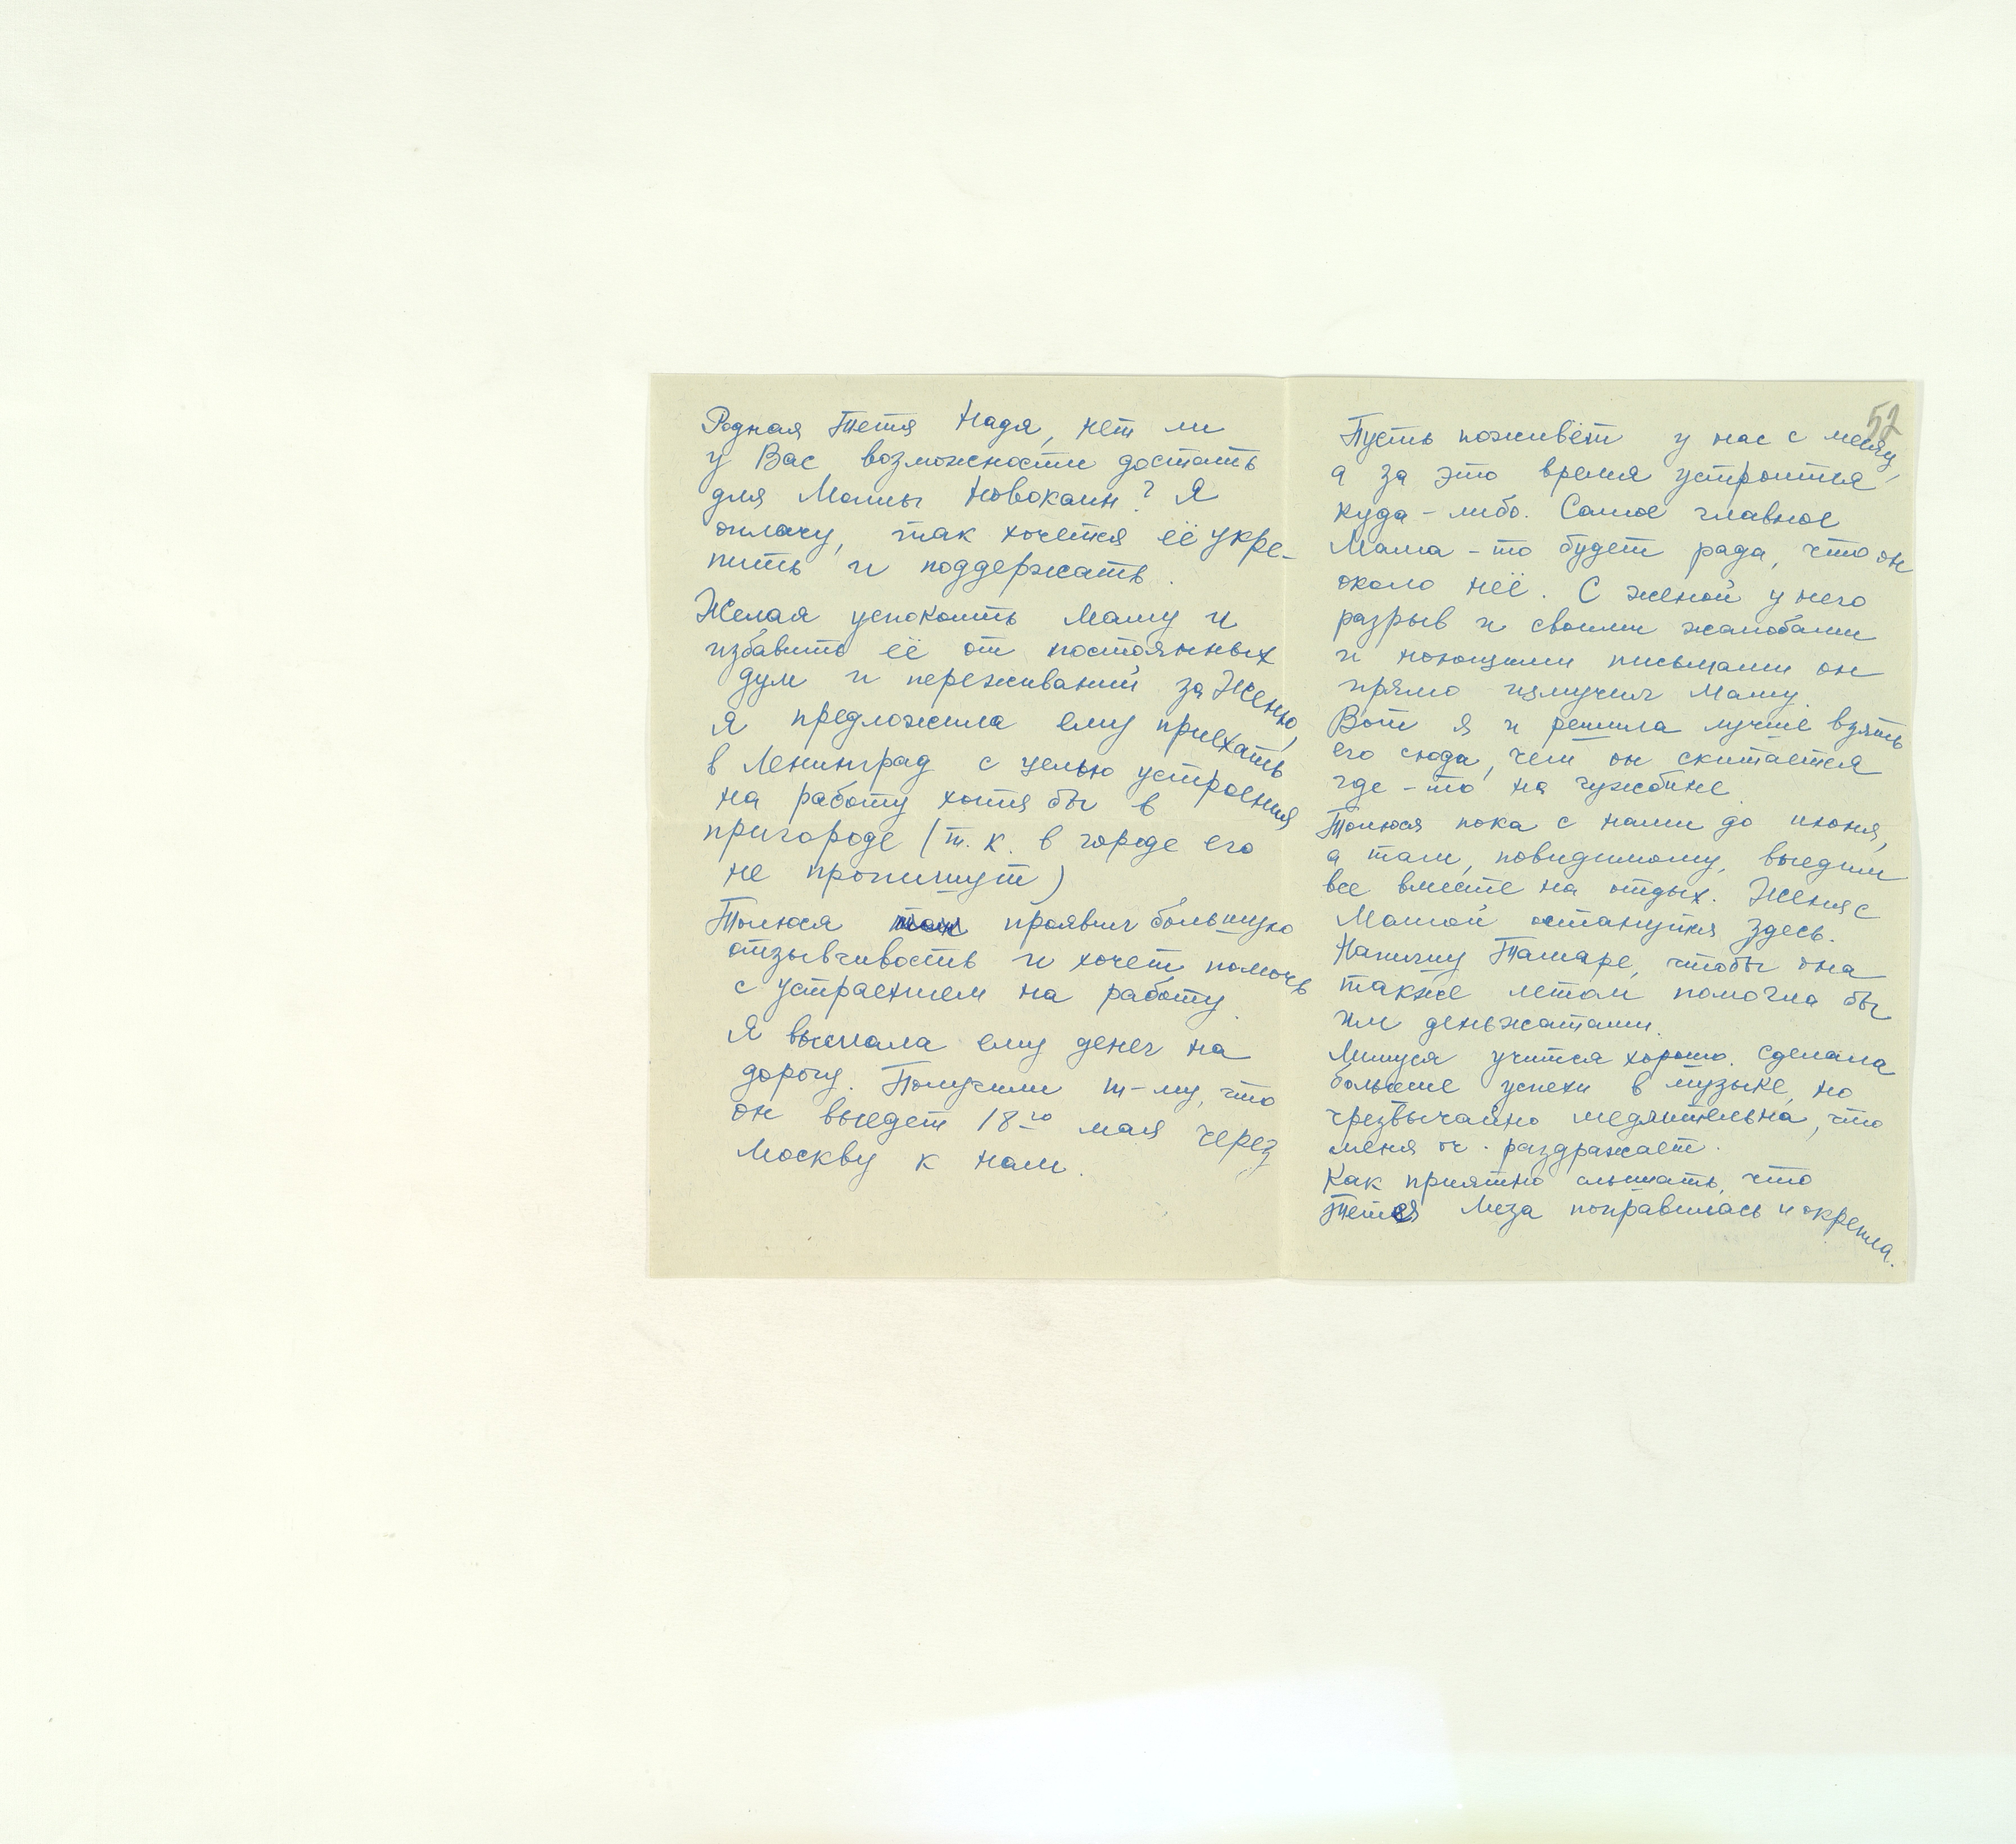 Родная Тетя Надя, нет ли
у Вас возможности достать
для Мамы Новокаин? Я
оплачу, так хочется её укре-
пить и поддержать.
Желая успокоить Маму и
избавить её от постоянных
дум и переживаний за Женю,
я предложила ему приехать
в Ленинград с целью устроения
на работу хотя бы в
пригороде (т. к. в городе его
не пропишут)
Толюся проявил большую
отзывчивость и хочет помочь
с устраением на работу.
Я выслала ему денег на
дорогу. Получили т-му, что
он выедет 18го мая через
Москву к нам.
52
Пусть поживёт у нас с месяц,
а за это время устроится
куда-либо. Самое главное
Мама-то будет рада, что он
около неё. С женой у него
разрыв и своими жалобами
и ноющими письмами он
прямо измучил Маму.
Вот я и решила лучше взять
его сюда, чем он скитается
где-то на чужбине.
Толюся пока с нами до июня,
а там, повидимому, выедим
все вместе на отдых. Женя с
Мамой останутся здесь.
Напишу Тамаре, чтобы она
также летом помогла бы
им деньжатами.
Милуся учится хорошо. Сделала
большие успехи в музыке, но
чрезвычайно медлительна, что
меня оч. раздражает.
Как приятно слышать, что
Тетя Лиза поправилась и окрепла.